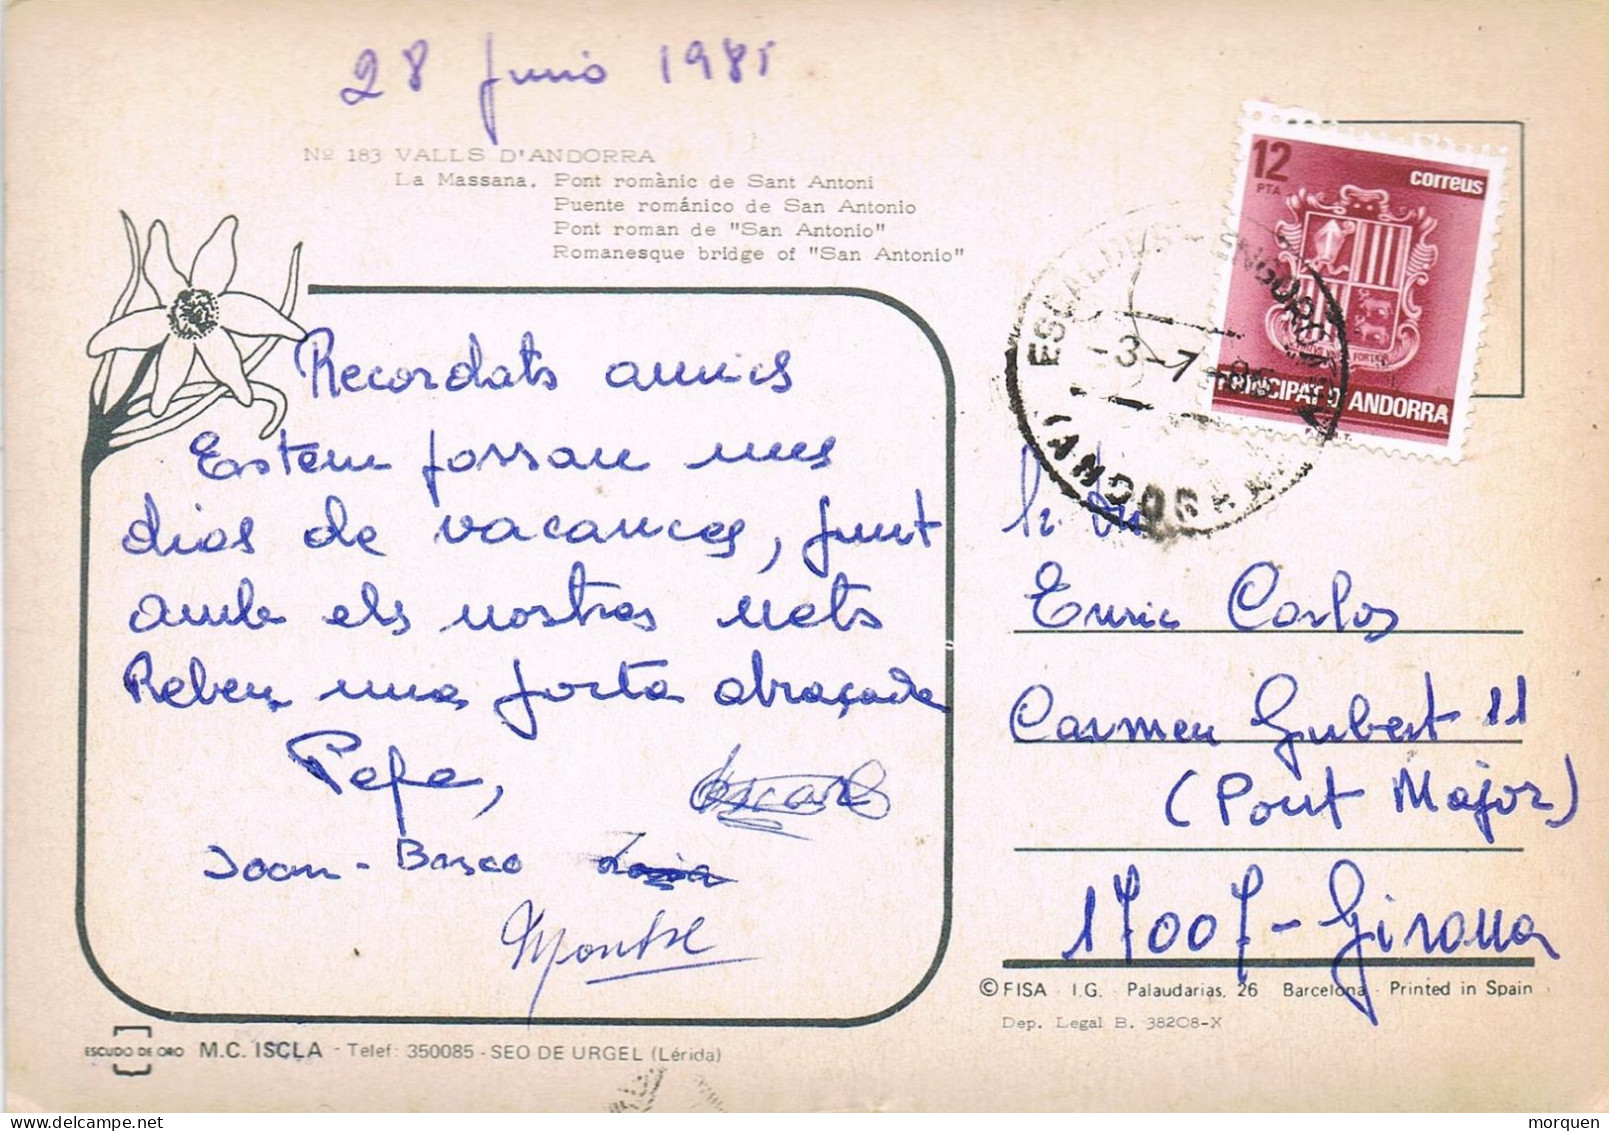 28 Junio 1985
Nº 183 VALLS D'ANDORRA
La Massana. Pont romànic de Sant Antoni
Puente románico de San Antonio
Pont roman de "San Antonio"
Romanesque bridge of "San Antonio"
12
PTA
correus
PRINCIPAT D'ANDORRA
ESCALDES - ENGORDANY
-3-7
(ANDORRA)
Recordats amics
Estem passan unes
dias de vacances, junt
amb els nostres nets
Reben una forta abraçada
Pepe, Oscar
Joan-Bosco
Montse
Sr. Dn
Enric Carlos
Carmen Gubert 11
(Pont Major)
17007-Girona
© FISA - I.G. Palaudarias, 26 Barcelona - Printed in Spain
Dep. Legal B. 38208-X
ESCUDO DE ORO M.C. ISCLA - Telef: 350085 - SEO DE URGEL (Lérida)
morquen